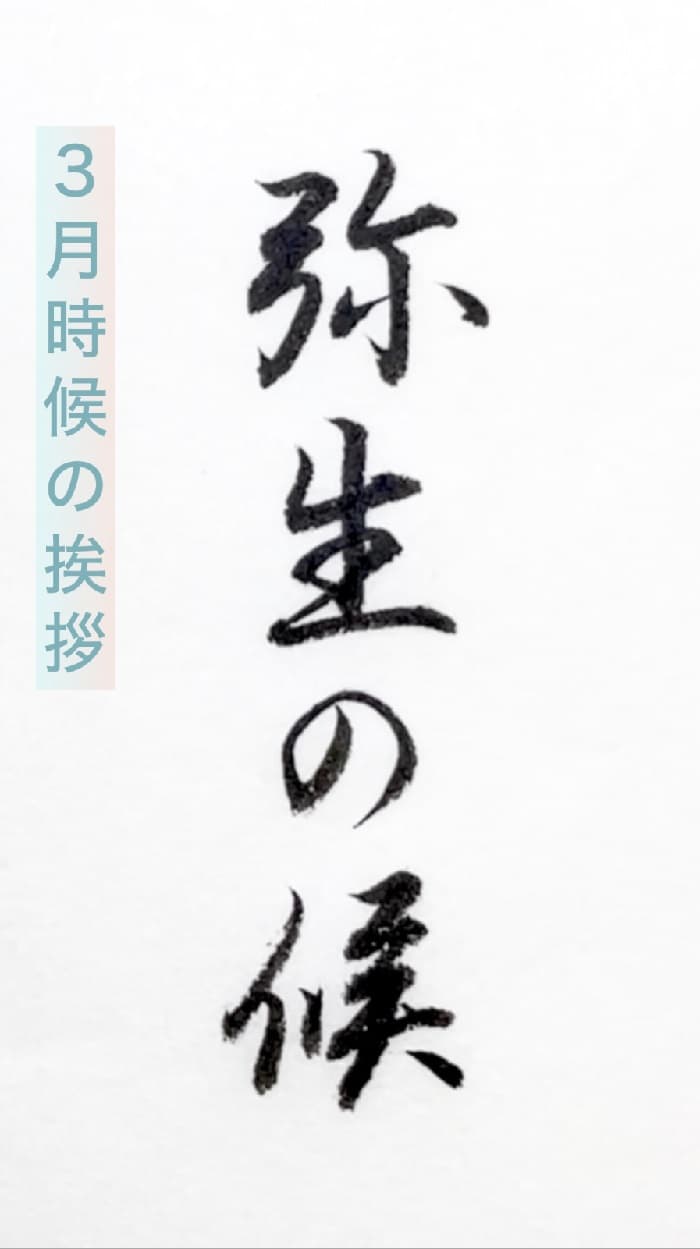 3月時候の挨拶
弥生の候